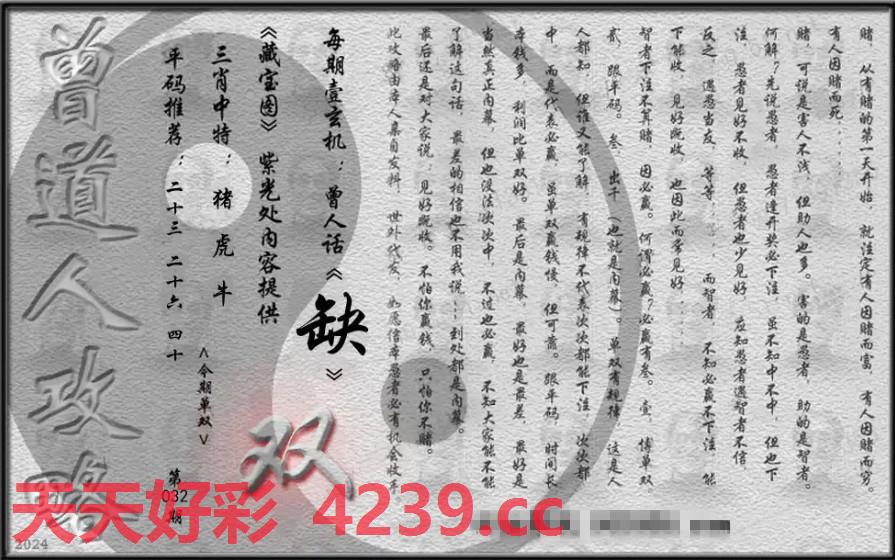 赌，从有赌的第一天开始，就注定有人因赌而富，有人因赌而穷。
有人因赌而死……
赌，可说是害人不浅，但助人也多。害的是愚者，助的是智者。
何解？先说愚者，愚者逢开奖必下注，虽不知中不中，但也下
注，愚者见好不收，但愚者也少见好，应知愚者遇智者不信，
反之，遇愚当友，等等……而智者，不知必赢不下注，能
下能收，见好既收，也因此而常见好，……
智者下注不算赌，因必赢。何谓必赢？必赢有叁。壹，傅单双。
贰，跟平码。叁，出千（也就是内幕）。单双有规律，这是人
人都知，但谁又能了解，有规律不代表次次都能下注，次次都
中，而是代表必赢，虽单双赢钱慢，但可靠。跟平码，时间长
本钱多，利润比单双好。最后是内幕，最好也是最差，最好是
当然真正内幕，但也没法次次中，不过也必赢，不知大家能不能
了解这句话，最差的相信也不用我说…到处都是内幕。
最后还是对大家说，见好既收。不怕你赢钱，只怕你不赌。
此攻略由本人亲自友料，世外代友，如愿信本愚者必有机会收手。
每期壹玄机：曾人话《缺》
《藏宝图》紫光处内容提供
三肖中特：猪 虎 牛
平码推荐：二十三 二十六 四十
<今期单双>
双
第
032
期
曾道人攻略
天天好彩 4239.cc
2024